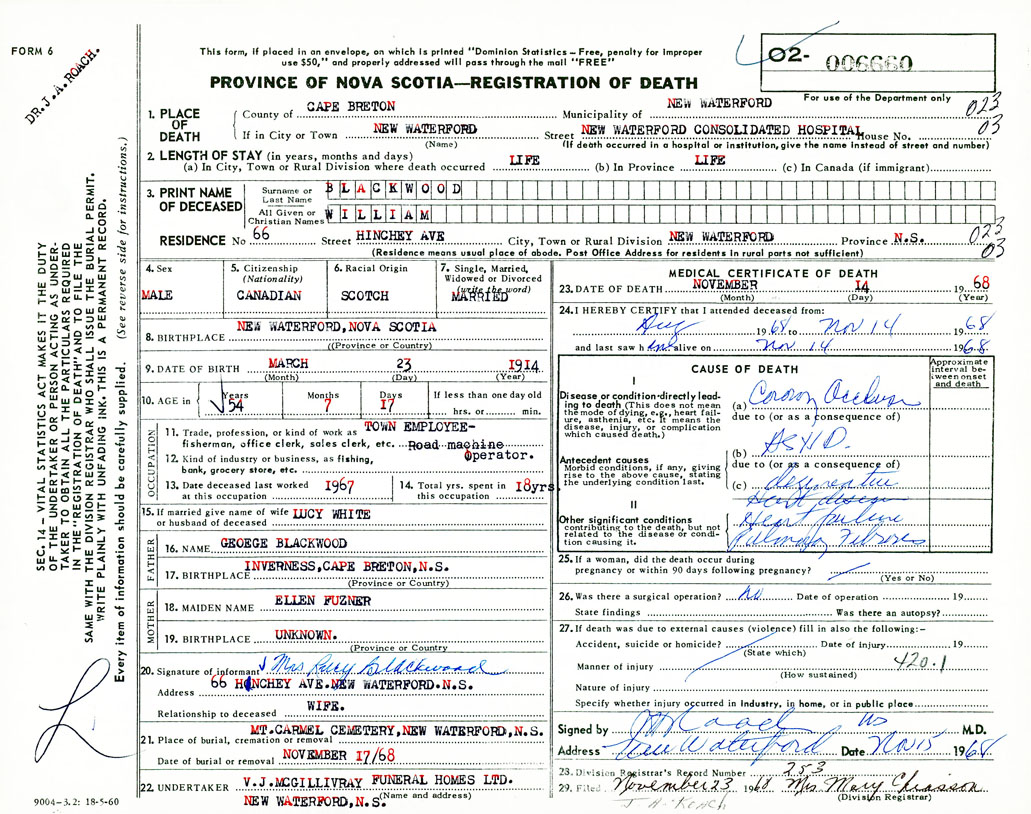 FORM 6
DR. J. A. ROACH.
This form, if placed in an envelope, on which is printed "Dominion Statistics – Free, penalty for improper
use $50," and properly addressed will pass through the mail "FREE"
PROVINCE OF NOVA SCOTIA—REGISTRATION OF DEATH
02- 006660
For use of the Department only
023
03
1. PLACE OF DEATH
County of CAPE BRETON Municipality of NEW WATERFORD
If in City or Town NEW WATERFORD Street NEW WATERFORD CONSOLIDATED HOSPITAL House No.
(Name) (If death occurred in a hospital or institution, give the name instead of street and number)
2. LENGTH OF STAY (in years, months and days)
(a) In City, Town or Rural Division where death occurred LIFE (b) In Province LIFE (c) In Canada (if immigrant)
3. PRINT NAME OF DECEASED
Surname or Last Name BLACKWOOD
All Given or Christian Names WILLIAM
RESIDENCE No 66 Street HINCHEY AVE City, Town or Rural Division NEW WATERFORD Province N.S.
023
03
(Residence means usual place of abode. Post Office Address for residents in rural parts not sufficient)
4. Sex
MALE
5. Citizenship
(Nationality)
CANADIAN
6. Racial Origin
SCOTCH
7. Single, Married,
Widowed or Divorced
(write the word)
MARRIED
8. BIRTHPLACE NEW WATERFORD, NOVA SCOTIA
((Province or Country)
9. DATE OF BIRTH MARCH 23 1914
(Month) (Day) (Year)
10. AGE in Years 54 Months 7 Days 17 If less than one day old
hrs. or min.
OCCUPATION
11. Trade, profession, or kind of work as TOWN EMPLOYEE-
fisherman, office clerk, sales clerk, etc. Road machine
12. Kind of industry or business, as fishing, Operator.
bank, grocery store, etc.
13. Date deceased last worked at this occupation 1967
14. Total yrs. spent in this occupation 18yrs
15. If married give name of wife or husband of deceased LUCY WHITE
FATHER
16. NAME GEORGE BLACKWOOD
17. BIRTHPLACE INVERNESS, CAPE BRETON, N.S.
(Province or Country)
MOTHER
18. MAIDEN NAME ELLEN FUZNER
19. BIRTHPLACE UNKNOWN.
(Province or Country
20. Signature of informant Mrs Blackwood
Address 66 HINCHEY AVE. NEW WATERFORD. N.S.
Relationship to deceased WIFE.
MT. CARMEL CEMETERY, NEW WATERFORD, N.S.
21. Place of burial, cremation or removal
Date of burial or removal NOVEMBER 17/68
22. UNDERTAKER V.J. MCGILLIVRAY FUNERAL HOMES LTD.
(Name and address)
NEW WATERFORD, N.S.
MEDICAL CERTIFICATE OF DEATH
23. DATE OF DEATH NOVEMBER 14 19 68
(Month) (Day) (Year)
24. I HEREBY CERTIFY that I attended deceased from:
Aug 1968 to Nov 14 1968
and last saw him alive on Nov. 14 1968
CAUSE OF DEATH
Approximate interval between onset and death
I
Disease or condition directly leading to death (This does not mean
the mode of dying, e.g., heart failure, asthenia, etc. It means the
disease, injury, or complication which caused death.)
(a)
due to (or as a consequence of)
(b) ASHD.
Antecedent causes
Morbid conditions, if any, giving rise to the above cause, stating
the underlying condition last.
due to (or as a consequence of)
(c) degenerative
Heart disease
II
Other significant conditions
contributing to the death, but not related to the disease or condition causing it.
Heart failure
Pulmonary Fibrosis
25. If a woman, did the death occur during
pregnancy or within 90 days following pregnancy?
(Yes or No)
26. Was there a surgical operation? No Date of operation 19
State findings Was there an autopsy?
27. If death was due to external causes (violence) fill in also the following:–
Accident, suicide or homicide? Date of injury 19
(State which)
420.1
Manner of injury
(How sustained)
Nature of injury
Specify whether injury occurred in industry, in home, or in public place
Signed by Roach M.D.
Address New Waterford Date Nov 15 1968
28. Division Registrar's Record Number 253
29. Filed November 23 1968 Mrs. Mary Chiasson
(Division Registrar)
SEC. 14 – VITAL STATISTICS ACT MAKES IT THE DUTY
OF THE UNDERTAKER OR PERSON ACTING AS UNDER-
TAKER TO OBTAIN ALL THE PARTICULARS REQUIRED
IN THE "REGISTRATION OF DEATH" AND TO FILE THE
SAME WITH THE DIVISION REGISTRAR WHO SHALL ISSUE THE BURIAL PERMIT.
WRITE PLAINLY WITH UNFADING INK. THIS IS A PERMANENT RECORD.
Every item of information should be carefully supplied. (See reverse side for instructions.)
9004-3.2: 18-5-60